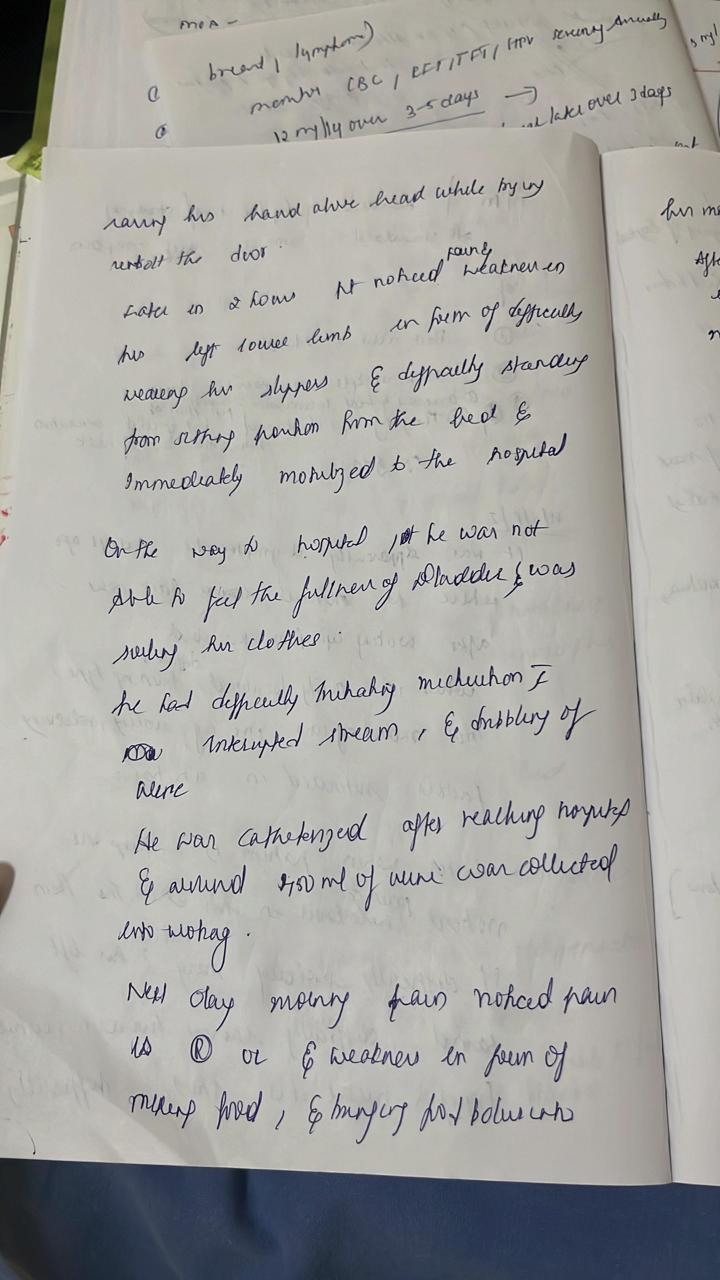 MOA -
breast, lymphoma)
monitor CBC, RFT, TFT, HPV screening Annually
12 mg/ly over 3-5 days →
later over 3 days
raising his hand above head while trying
unbolt the door.
Later in 2 hours Pt noticed weakness in
his left lower limb in form of difficulty
wearing his slippers & difficulty standing
from sitting position from the bed &
Immediately mobilized to the hospital
On the way to hospital, he was not
Able to feel the fullness of Bladder & was
soiling his clothes.
he had difficulty Initiating micturition c̄
Interrupted stream, & dribbling of
urine
He was catheterized after reaching hospital
& around 450 ml of urine was collected
into urobag.
Next day morning pain noticed pain
in Ⓡ UL & weakness in form of
mixing food, & bringing food bolus into
his